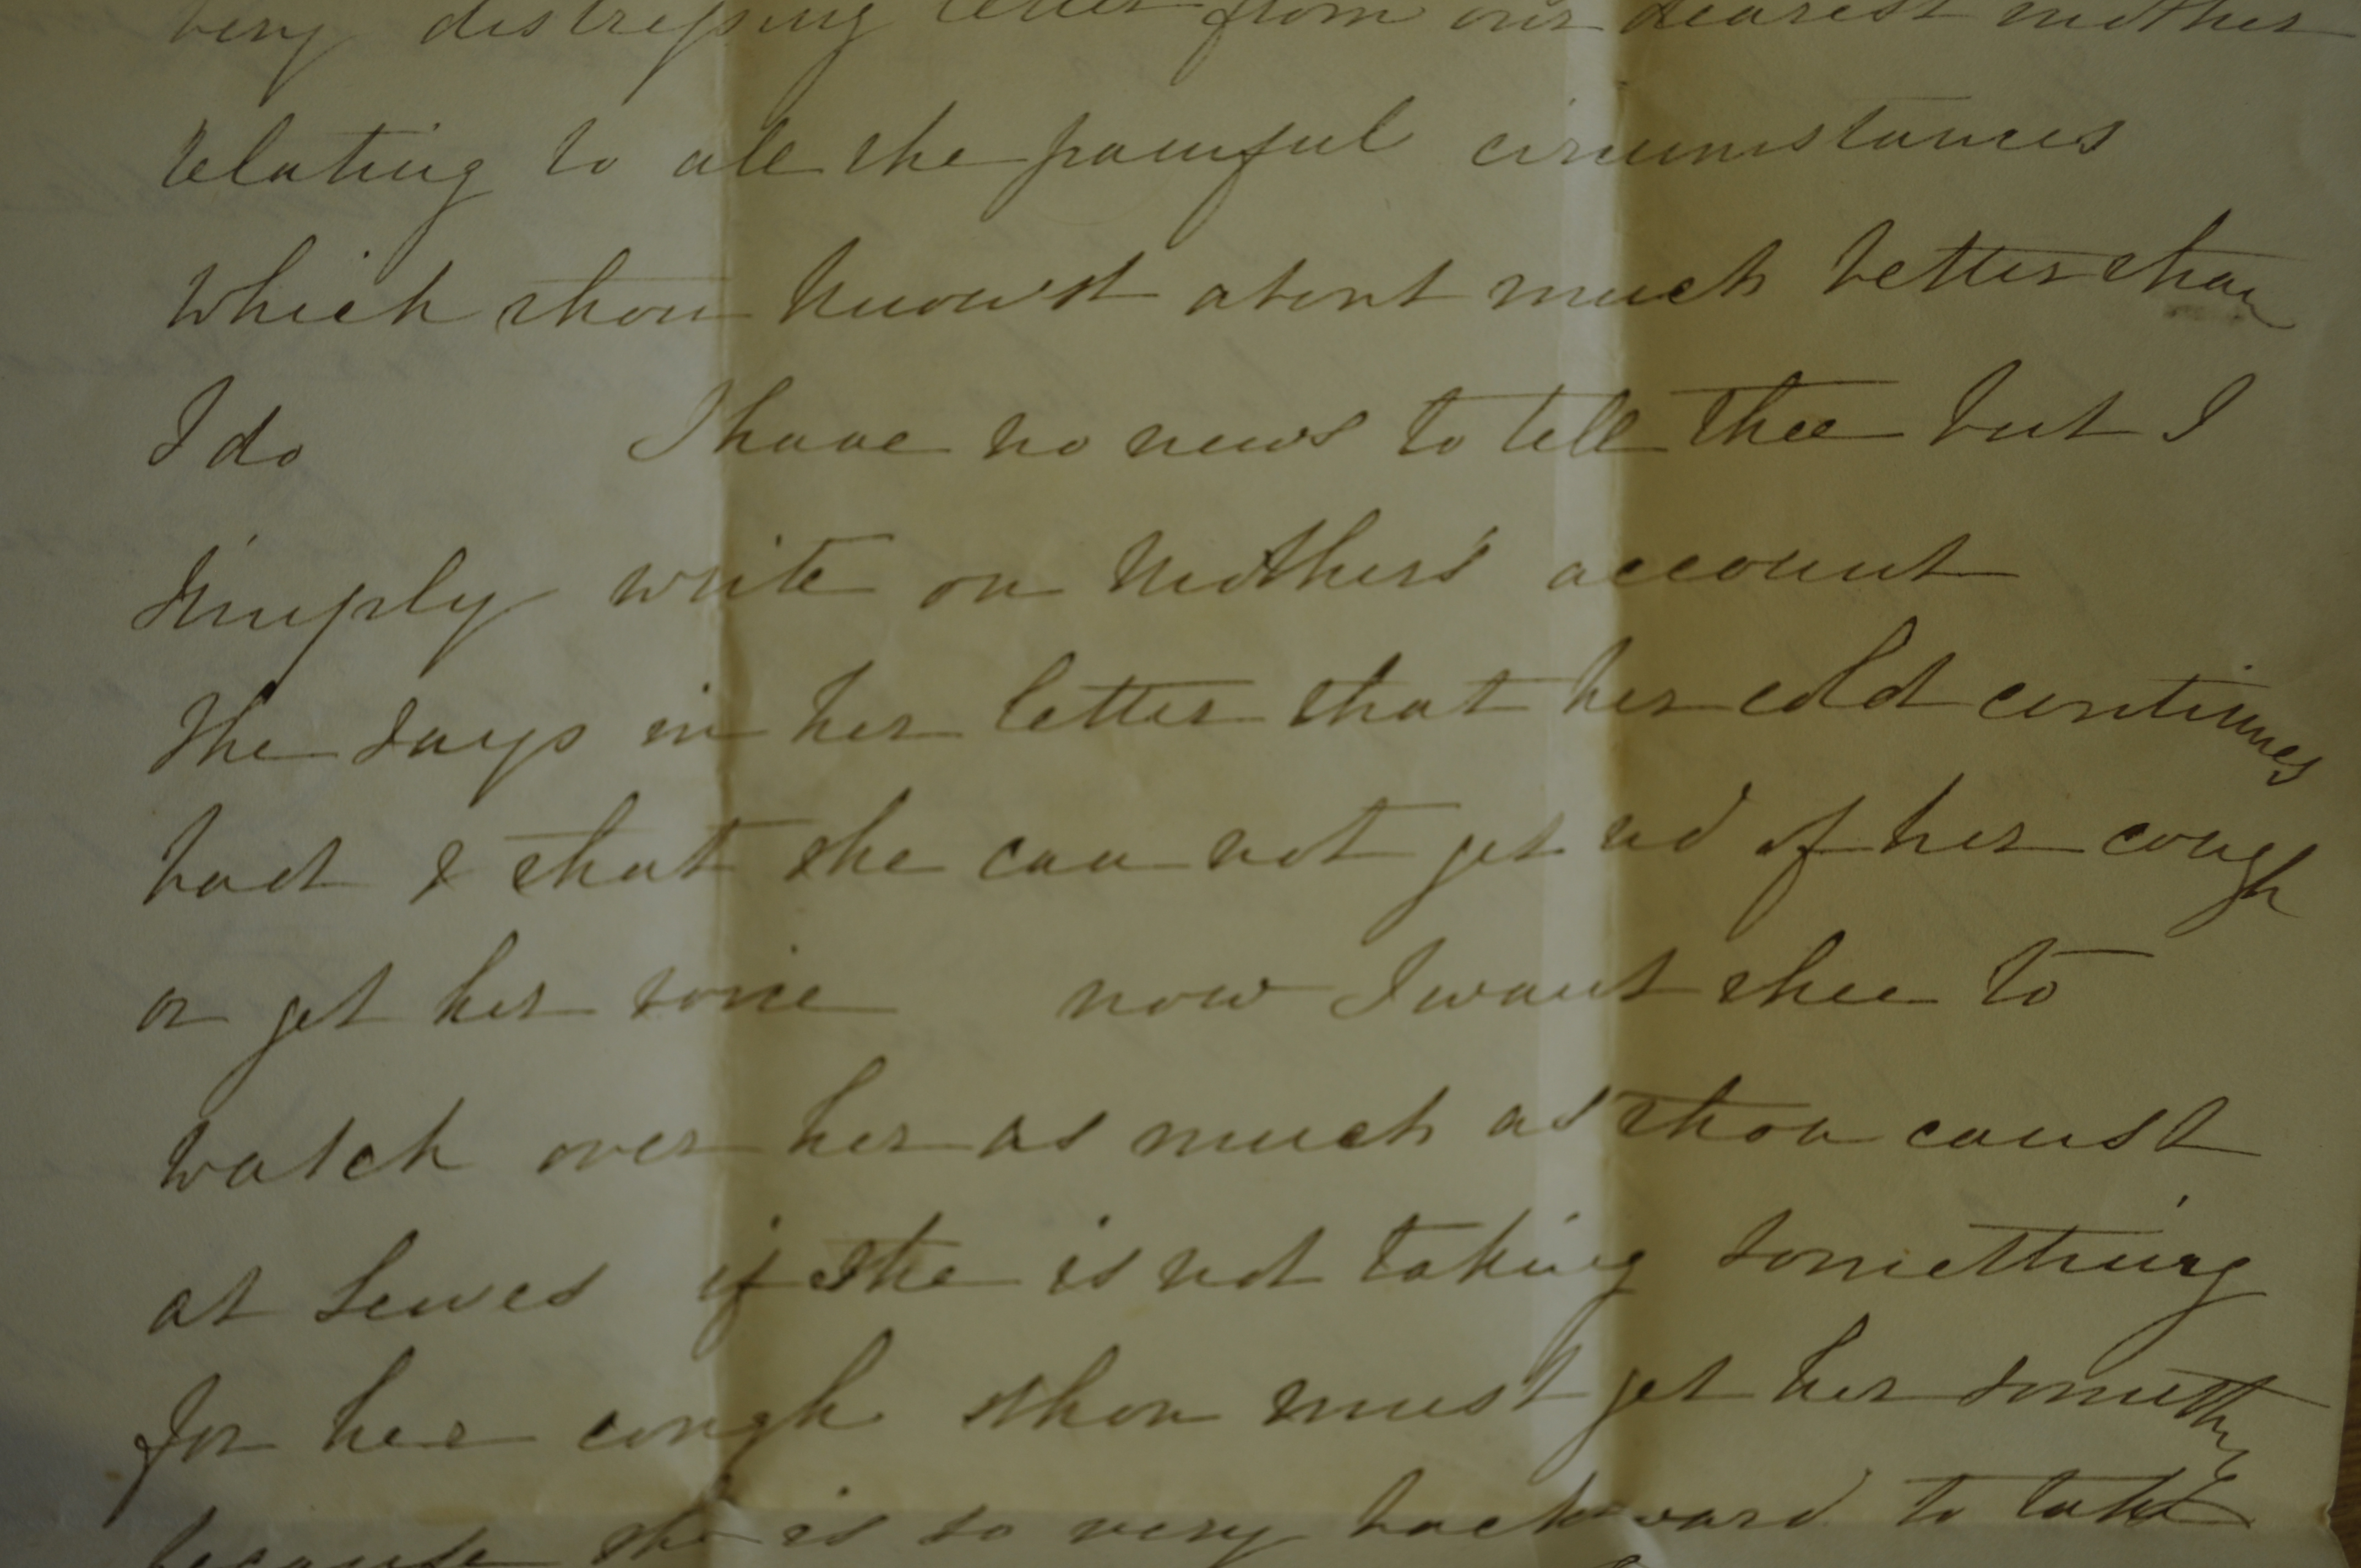 very distressing letter from our dearest mother
relating to all the painful circumstances
which thou know'st about much better than
I do I have no news to tell thee but I
simply write on Mother's account
She says in her letter that her cold continues
bad & that she can not get rid of her cough
or get her voice now I want thee to
watch over her as much as thou canst
at Lewes if she is not taking something
for her cough thou must get her something
because she is so very backward to take